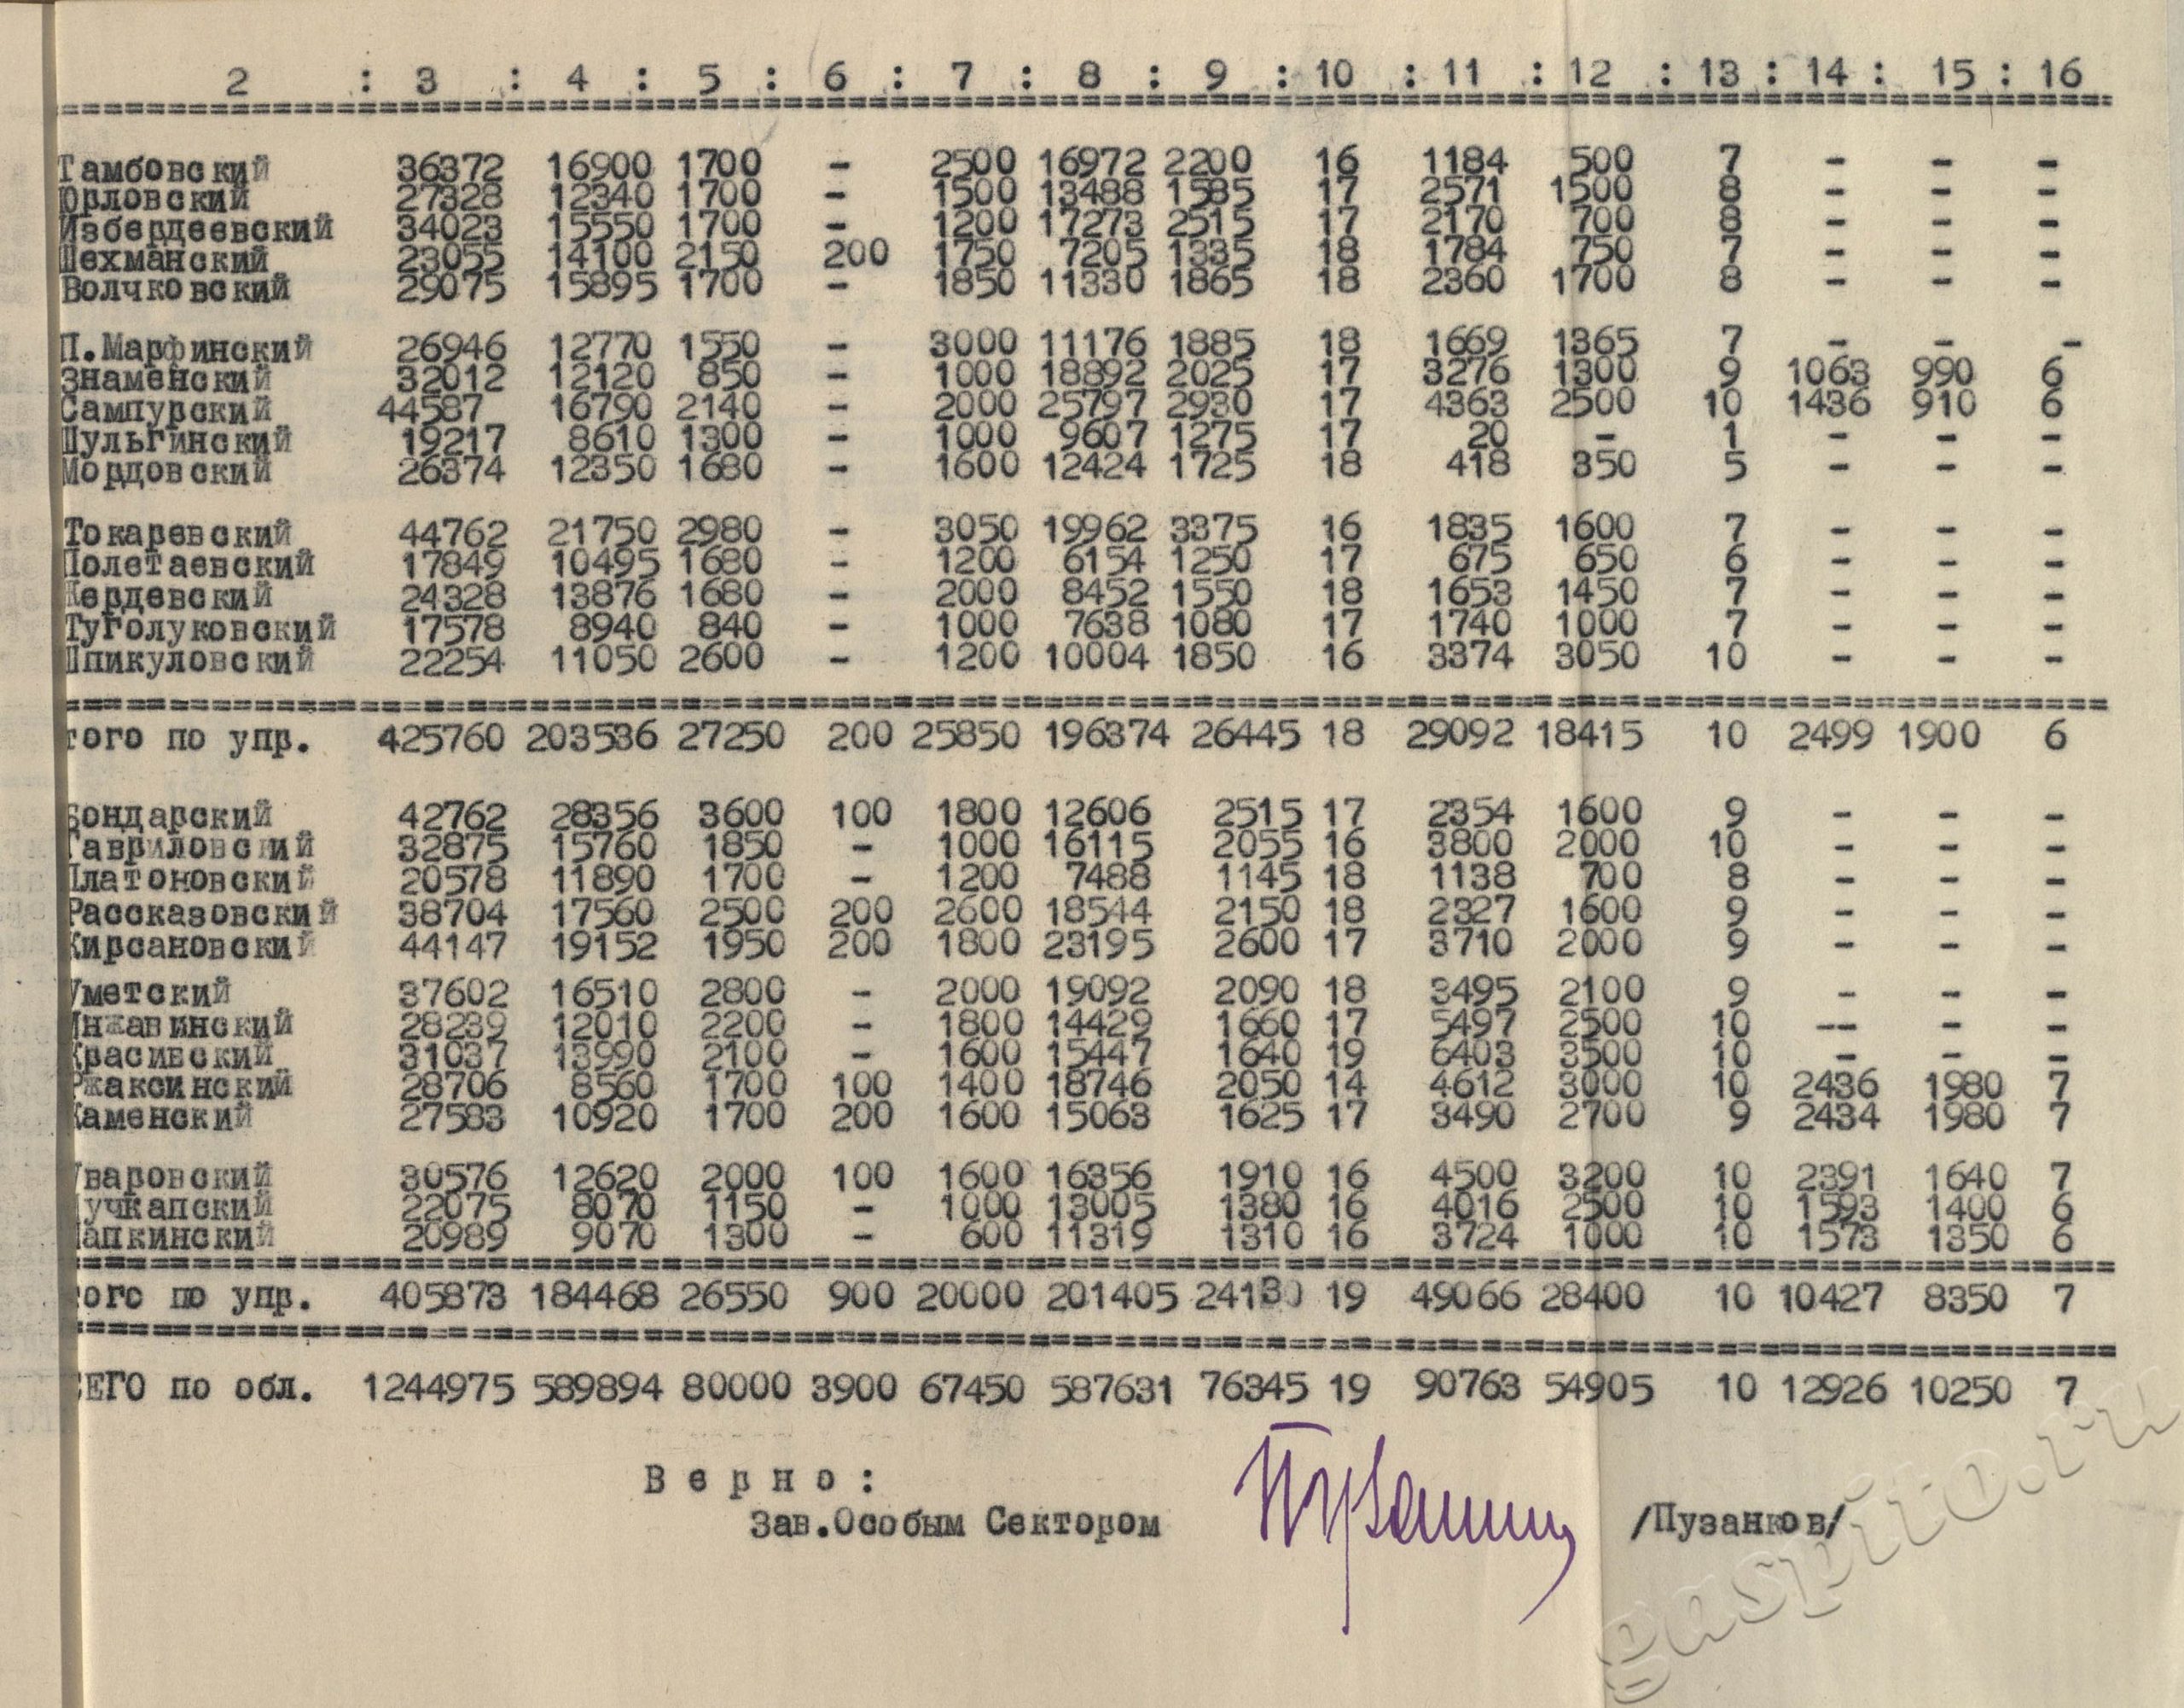 2 : 3 : 4 : 5 : 6 : 7 : 8 : 9 : 10 : 11 : 12 : 13 : 14 : 15 : 16
Тамбовский 36372 16900 1700 - 2500 16972 2200 16 1184 500 7 - - -
Юрловский 27328 12340 1700 - 1500 13488 1585 17 2571 1500 8 - - -
Избердеевский 34023 15550 1700 - 1200 17273 2515 17 2170 700 8 - - -
Шехманский 23055 14100 2150 200 1750 7205 1335 18 1784 750 7 - - -
Волчковский 29075 15895 1700 - 1850 11330 1865 18 2360 1700 8 - - -
П.Марфинский 26946 12770 1550 - 3000 11176 1885 18 1669 1365 7 - - -
Знаменский 32012 12120 850 - 1000 18892 2025 17 3276 1300 9 1063 990 6
Сампурский 44587 16790 2140 - 2000 25797 2930 17 4363 2500 10 1436 910 6
Шульгинский 19217 8610 1300 - 1000 9607 1275 17 20 - 1 - - -
Мордовский 26374 12350 1680 - 1600 12424 1725 18 418 350 5 - - -
Токаревский 44762 21750 2980 - 3050 19962 3375 16 1835 1600 7 - - -
Полетаевский 17849 10495 1680 - 1200 6154 1250 17 675 650 6 - - -
Жердевский 24328 13876 1680 - 2000 8452 1550 18 1653 1450 7 - - -
Туголуковский 17578 8940 840 - 1000 7638 1080 17 1740 1000 7 - - -
Шпикуловский 22254 11050 2600 - 1200 10004 1850 16 3374 3050 10 - - -
того по упр. 425760 203536 27250 200 25850 196374 26445 18 29092 18415 10 2499 1900 6
Бондарский 42762 28356 3600 100 1800 12606 2515 17 2354 1600 9 - - -
Гавриловский 32875 15760 1850 - 1000 16115 2055 16 3800 2000 10 - - -
Платоновский 20578 11890 1700 - 1200 7488 1145 18 1138 700 8 - - -
Рассказовский 38704 17560 2500 200 2600 18544 2150 18 2327 1600 9 - - -
Кирсановский 44147 19152 1950 200 1800 23195 2600 17 3710 2000 9 - - -
Уметский 37602 16510 2800 - 2000 19092 2090 18 3495 2100 9 - - -
Инжавинский 28239 12010 2200 - 1800 14429 1660 17 5497 2500 10 -- - -
Красивский 31037 13990 2100 - 1600 15447 1640 19 6403 3500 10 - - -
Ржаксинский 28706 8560 1700 100 1400 18746 2050 14 4612 3000 10 2436 1980 7
Каменский 27583 10920 1700 200 1600 15063 1625 17 3490 2700 9 2434 1980 7
Уваровский 30576 12620 2000 100 1600 16356 1910 16 4500 3200 10 2391 1640 7
учкапский 22075 8070 1150 - 1000 13005 1380 16 4016 2500 10 1593 1400 6
апкинский 20989 9070 1300 - 600 11319 1310 16 3724 1000 10 1573 1350 6
того по упр. 405873 184468 26550 900 20000 201405 24130 19 49066 28400 10 10427 8350 7
СЕГО по обл. 1244975 589894 80000 3900 67450 587631 76345 19 90763 54905 10 12926 10250 7
Верно:
Зав.Особым Сектором /Пузанков/
gaspito.ru